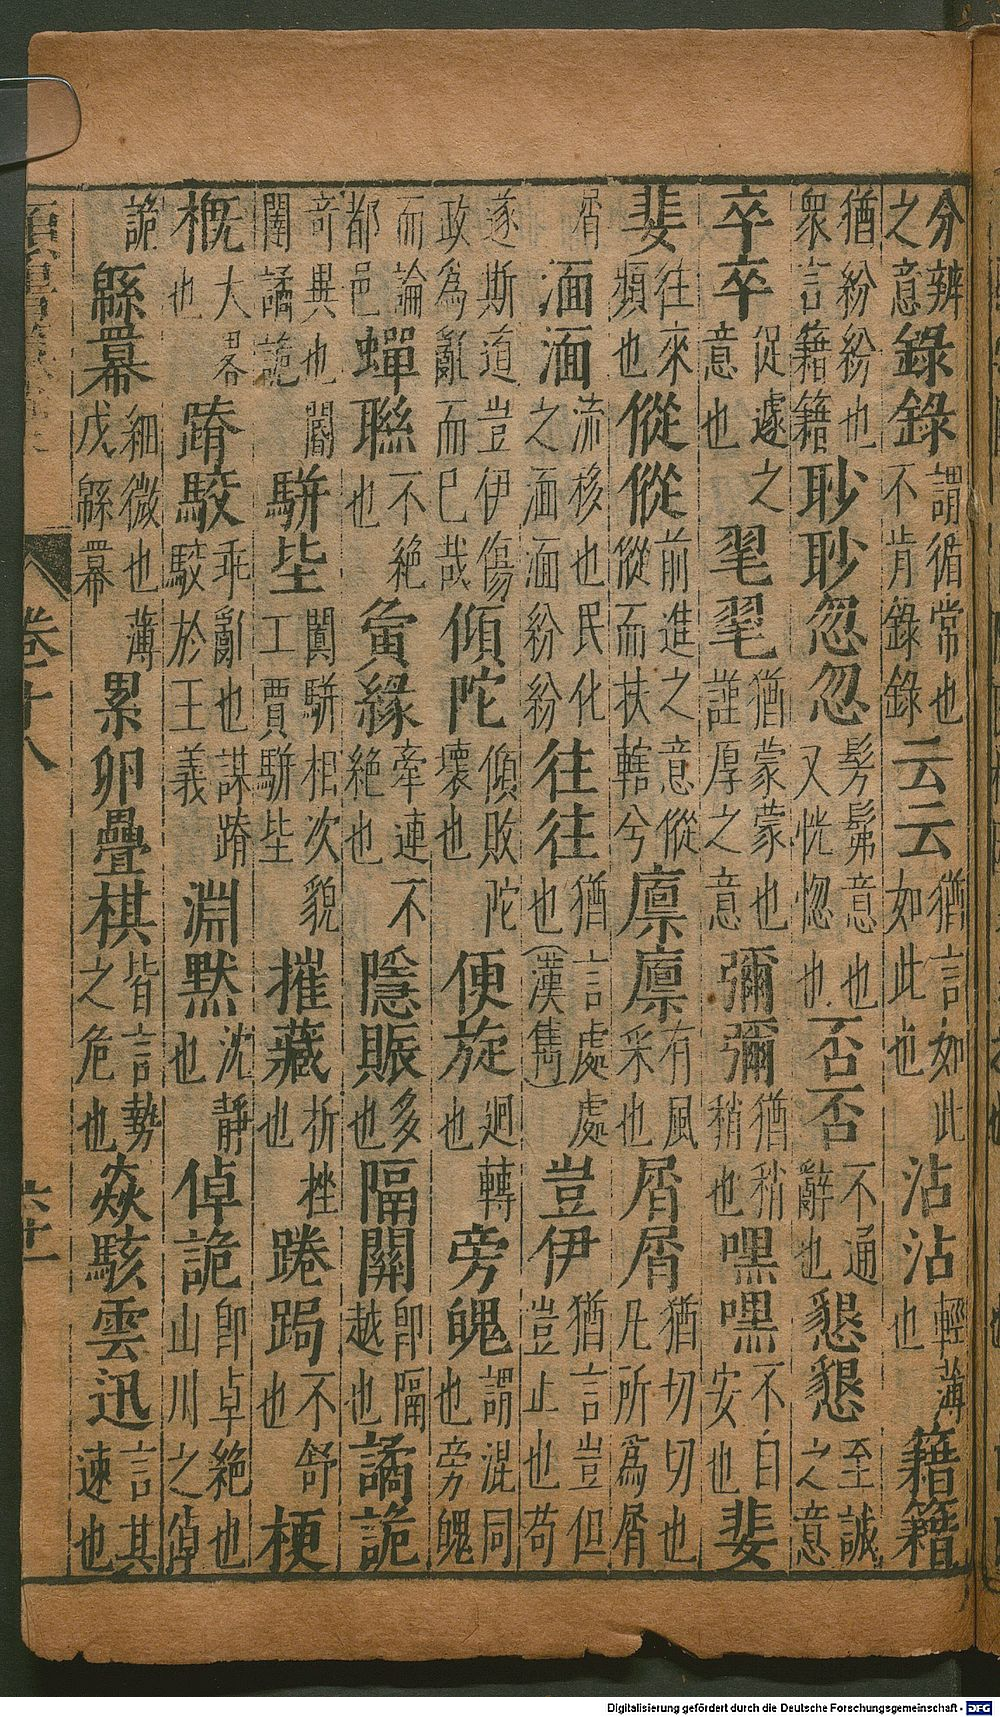 分辨之意錄錄謂循常也不肯錄錄云云猶言如此如此也沾沾輕薄也籍籍
猶紛紛也衆言籍籍𦕈𦕈忽忽髣髴意也又恍惚也否否不通辭也懇懇至誠之意
卒卒促遽之意也毣毣猶蒙蒙也謹厚之意彌彌猶稍稍也嘿嘿不自安也婓
婓往來類也傱傱前進之意傱傱而扶轄兮廩廩有風采也屑屑猶切切也凡所為屑
屑湎湎流移也民化之湎湎紛紛往往猶言處處也(漢雋)豈伊猶言豈但豈止也苟
遂斯道豈伊傷政為亂而已哉傾陀傾敗陀壞也便旋迴轉也旁魄謂混同也旁魄
而論都邑蟬聯不絶也夤緣牽連不絶也隱賑多也隔關卽隔越也譎詭
奇異也闤闠譎詭駢坒闐駢相次貌工賈駢坒摧藏折挫也踡跼不舒也梗
概大畧也踳駮乖亂也謀踳駮於王義淵默沈靜也倬詭卽卓絶也山川之倬
詭緜羃細微也薄戊緜羃累卵疊棋皆言勢之危也焱駭雲迅言其速也
卷十八 六十一
Digitalisierung gefördert durch die Deutsche Forschungsgemeinschaft - DFG